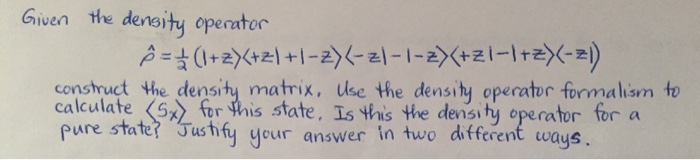 Given the density operator
ρ̂ = ½ (|+z⟩⟨+z| + |−z⟩⟨−z| − |−z⟩⟨+z| − |+z⟩⟨−z|)
construct the density matrix. Use the density operator formalism to
calculate ⟨Sx⟩ for this state. Is this the density operator for a
pure state? Justify your answer in two different ways.